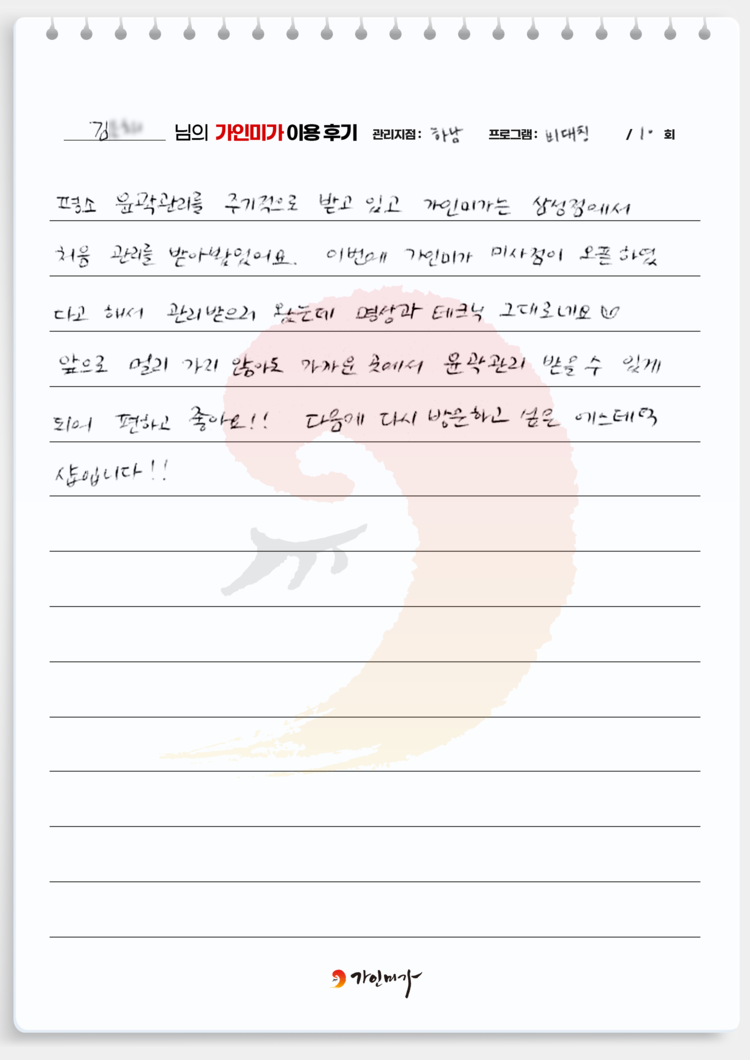 김 님의 가인미가 이용 후기 관리지점 : 하남 프로그램 : 비대칭 / 10 회
평소 윤곽관리를 주기적으로 받고 있고 가인미가는 삼성점에서
처음 관리를 받아봤있어요. 이번에 가인미가 미사점이 오픈하였
다고 해서 관리받으러 왔는데 명상과 테크닉 그대로네요
앞으로 멀리 가리 않아도 가까운 곳에서 윤곽관리 받을 수 있게
되어 편하고 좋아요!! 다음에 다시 방문하고 싶은 에스테틱
샵입니다!!
가인미가